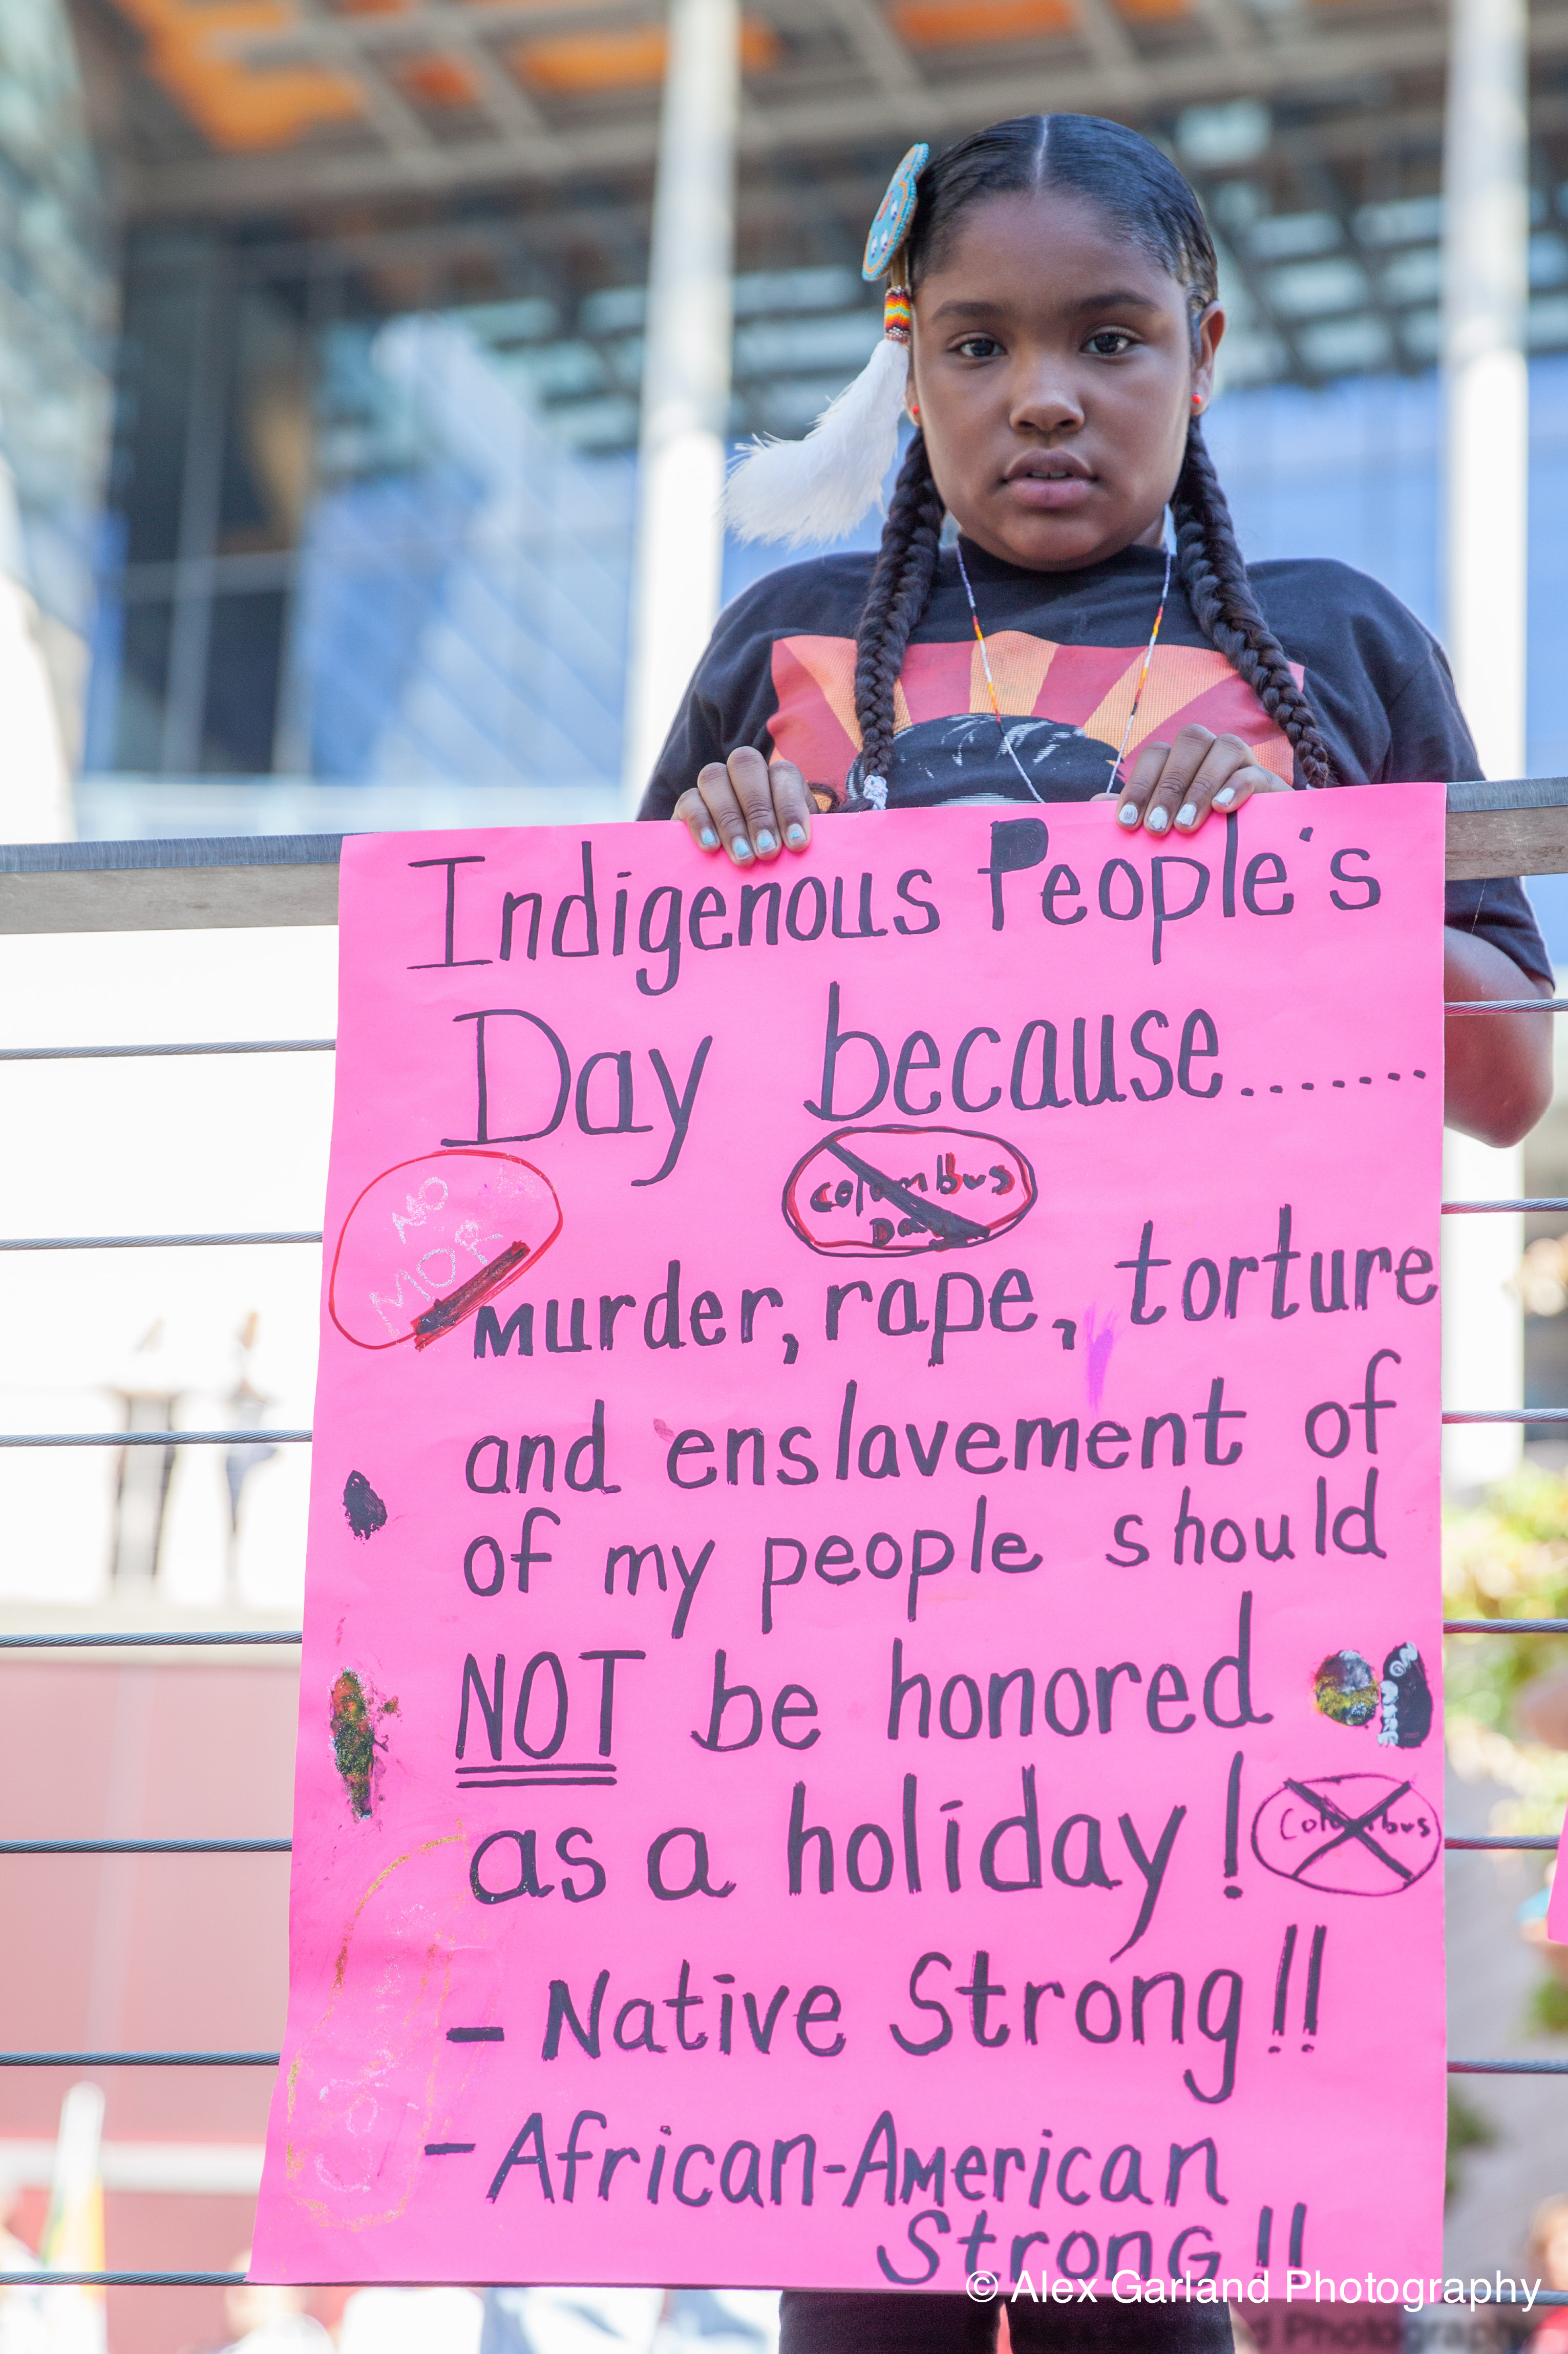 Indigenous People's
Day because.......
Columbus
Day
NO
MOR
murder, rape, torture
and enslavement of
of my people should
NOT be honored
NO
as a holiday!
Columbus
- Native Strong!!
- African-American
Strong!!
© Alex Garland Photography